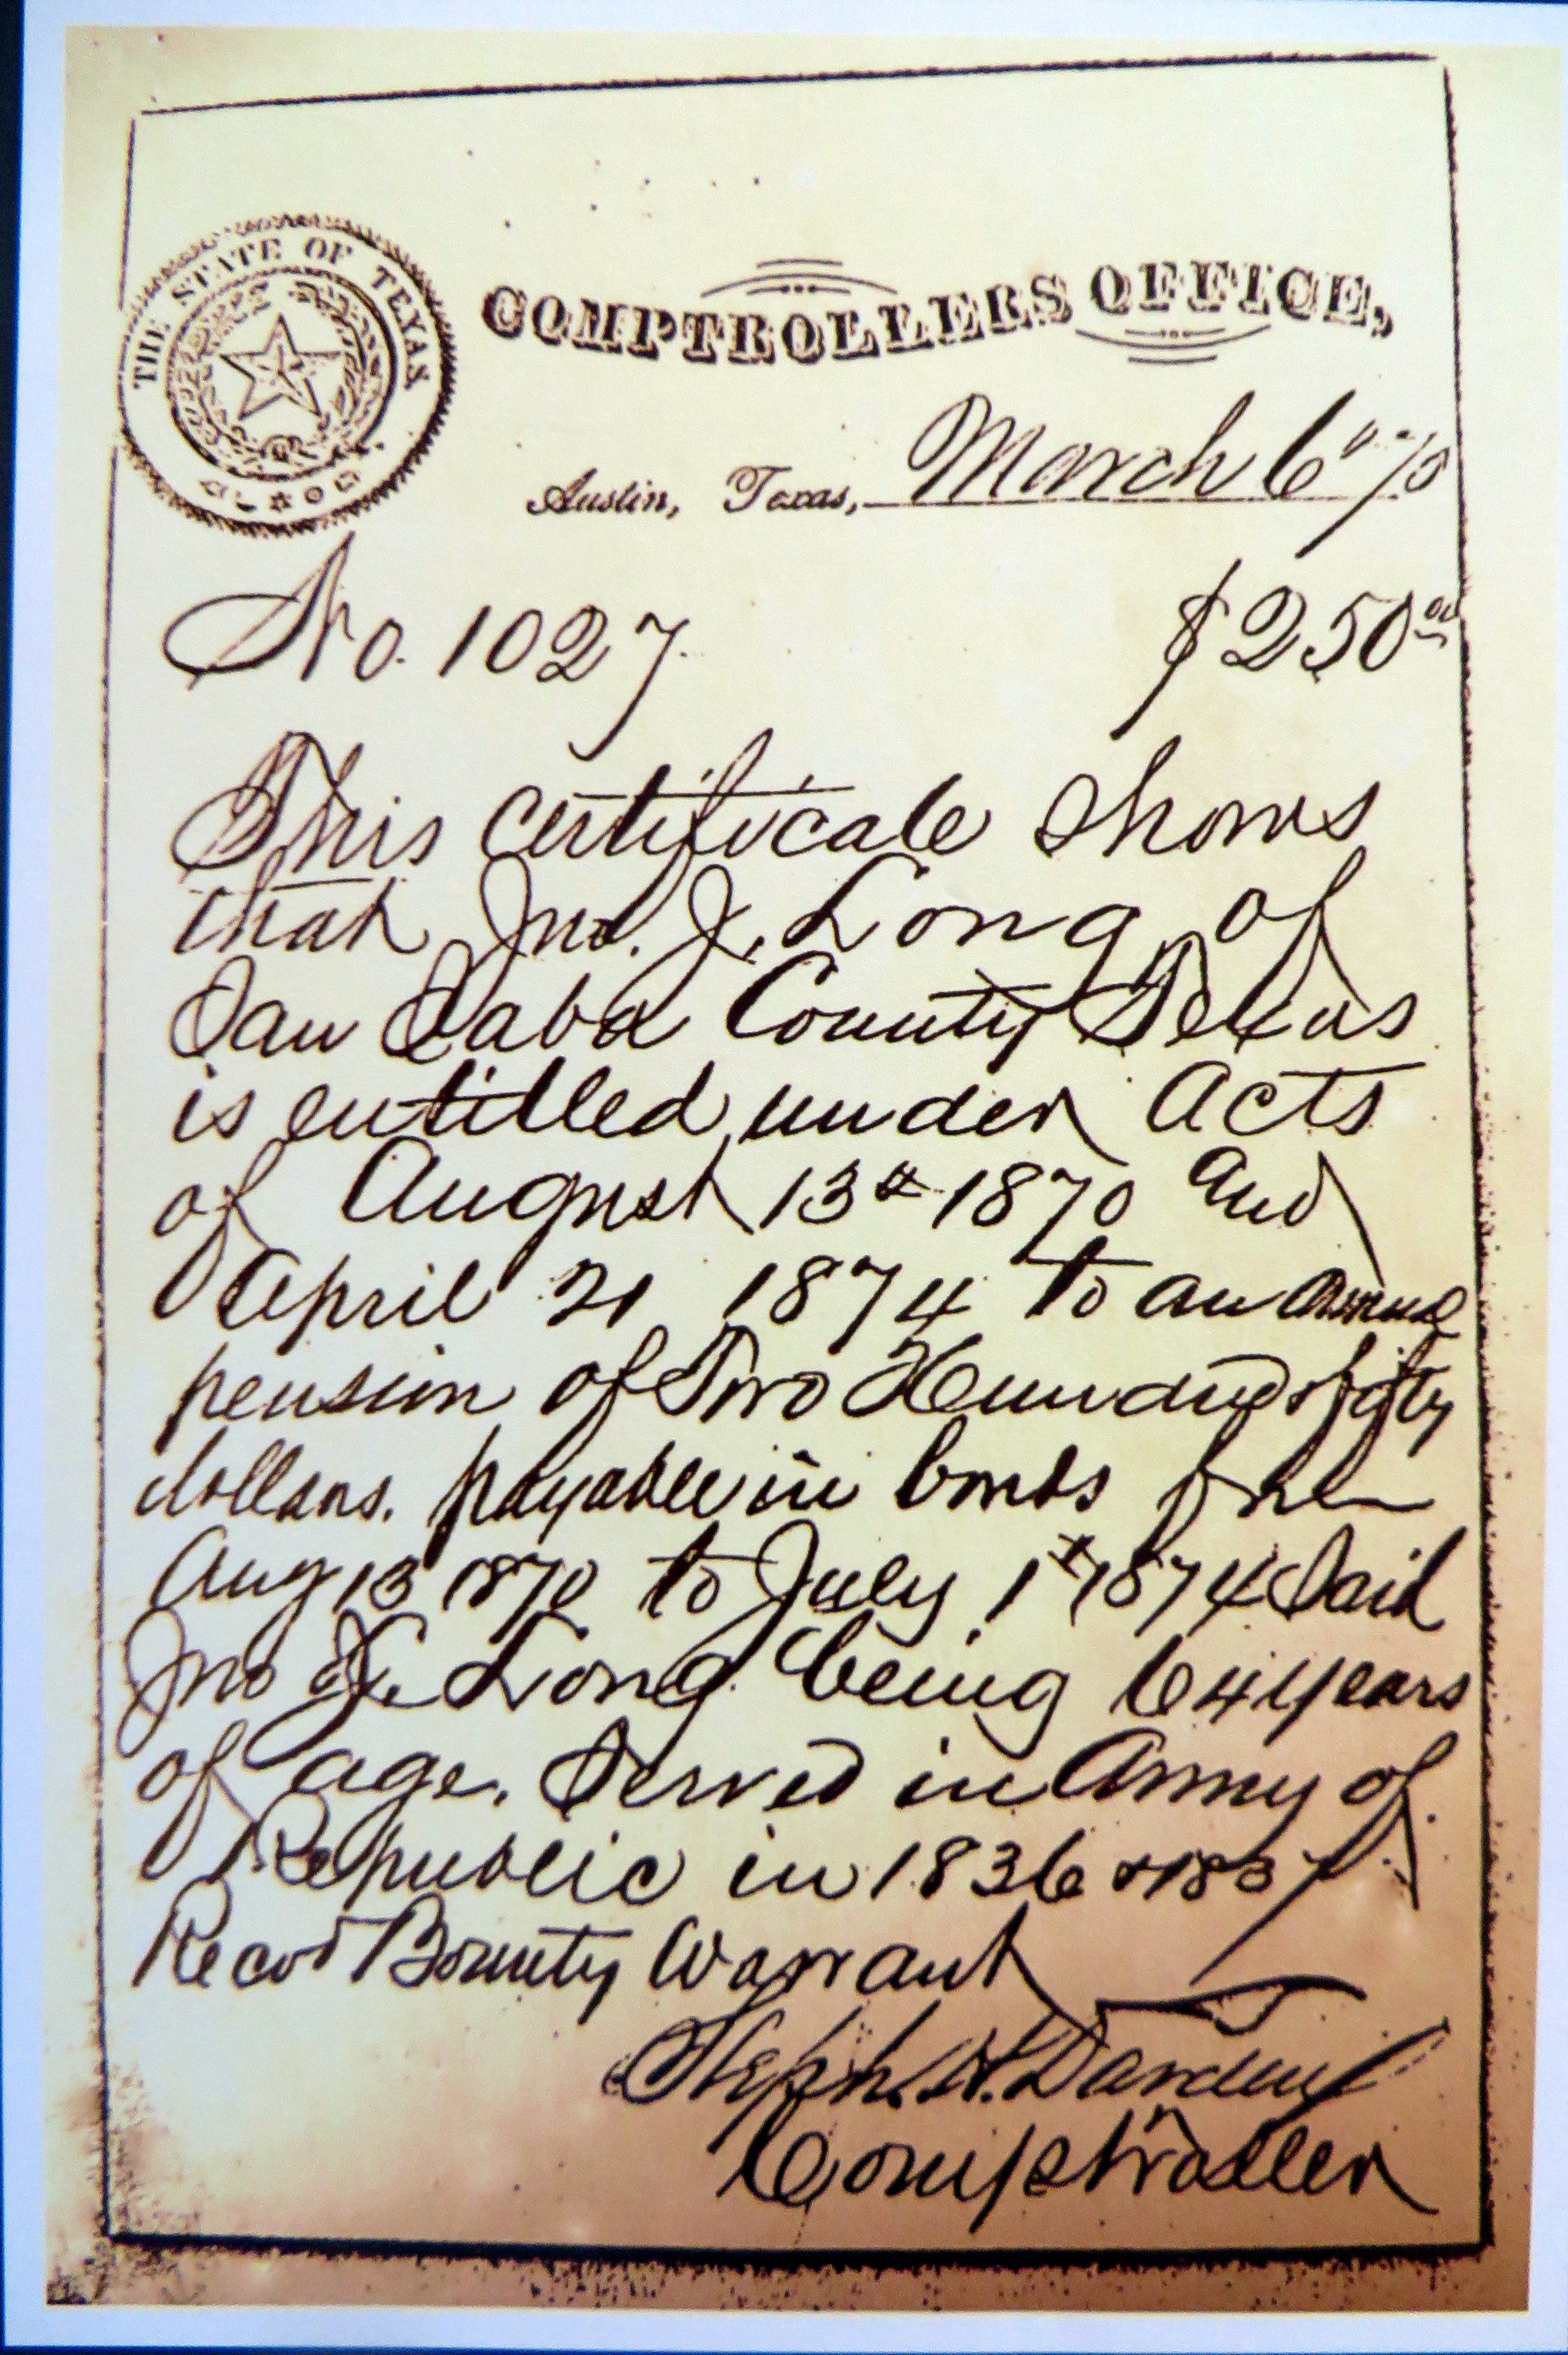 THE STATE OF TEXAS
COMPTROLLERS OFFICE,
Austin, Texas, March 6"
No. 1027. $250 00
This certificate shows
that Jno. J. Long, of
San Saba County Texas
is entitled under Acts
of August 13th 1870 and
April 21 1874 to an annual
pension of Two Hundred & fifty
dollars. payable in bonds from
Aug 13 1870 to July 1st 1874 Said
Jno J. Long being 64 years
of age. Served in Army of
Republic in 1836 & 1837.
Recd Bounty Warrant
Steph. H. Darden
Comptroller